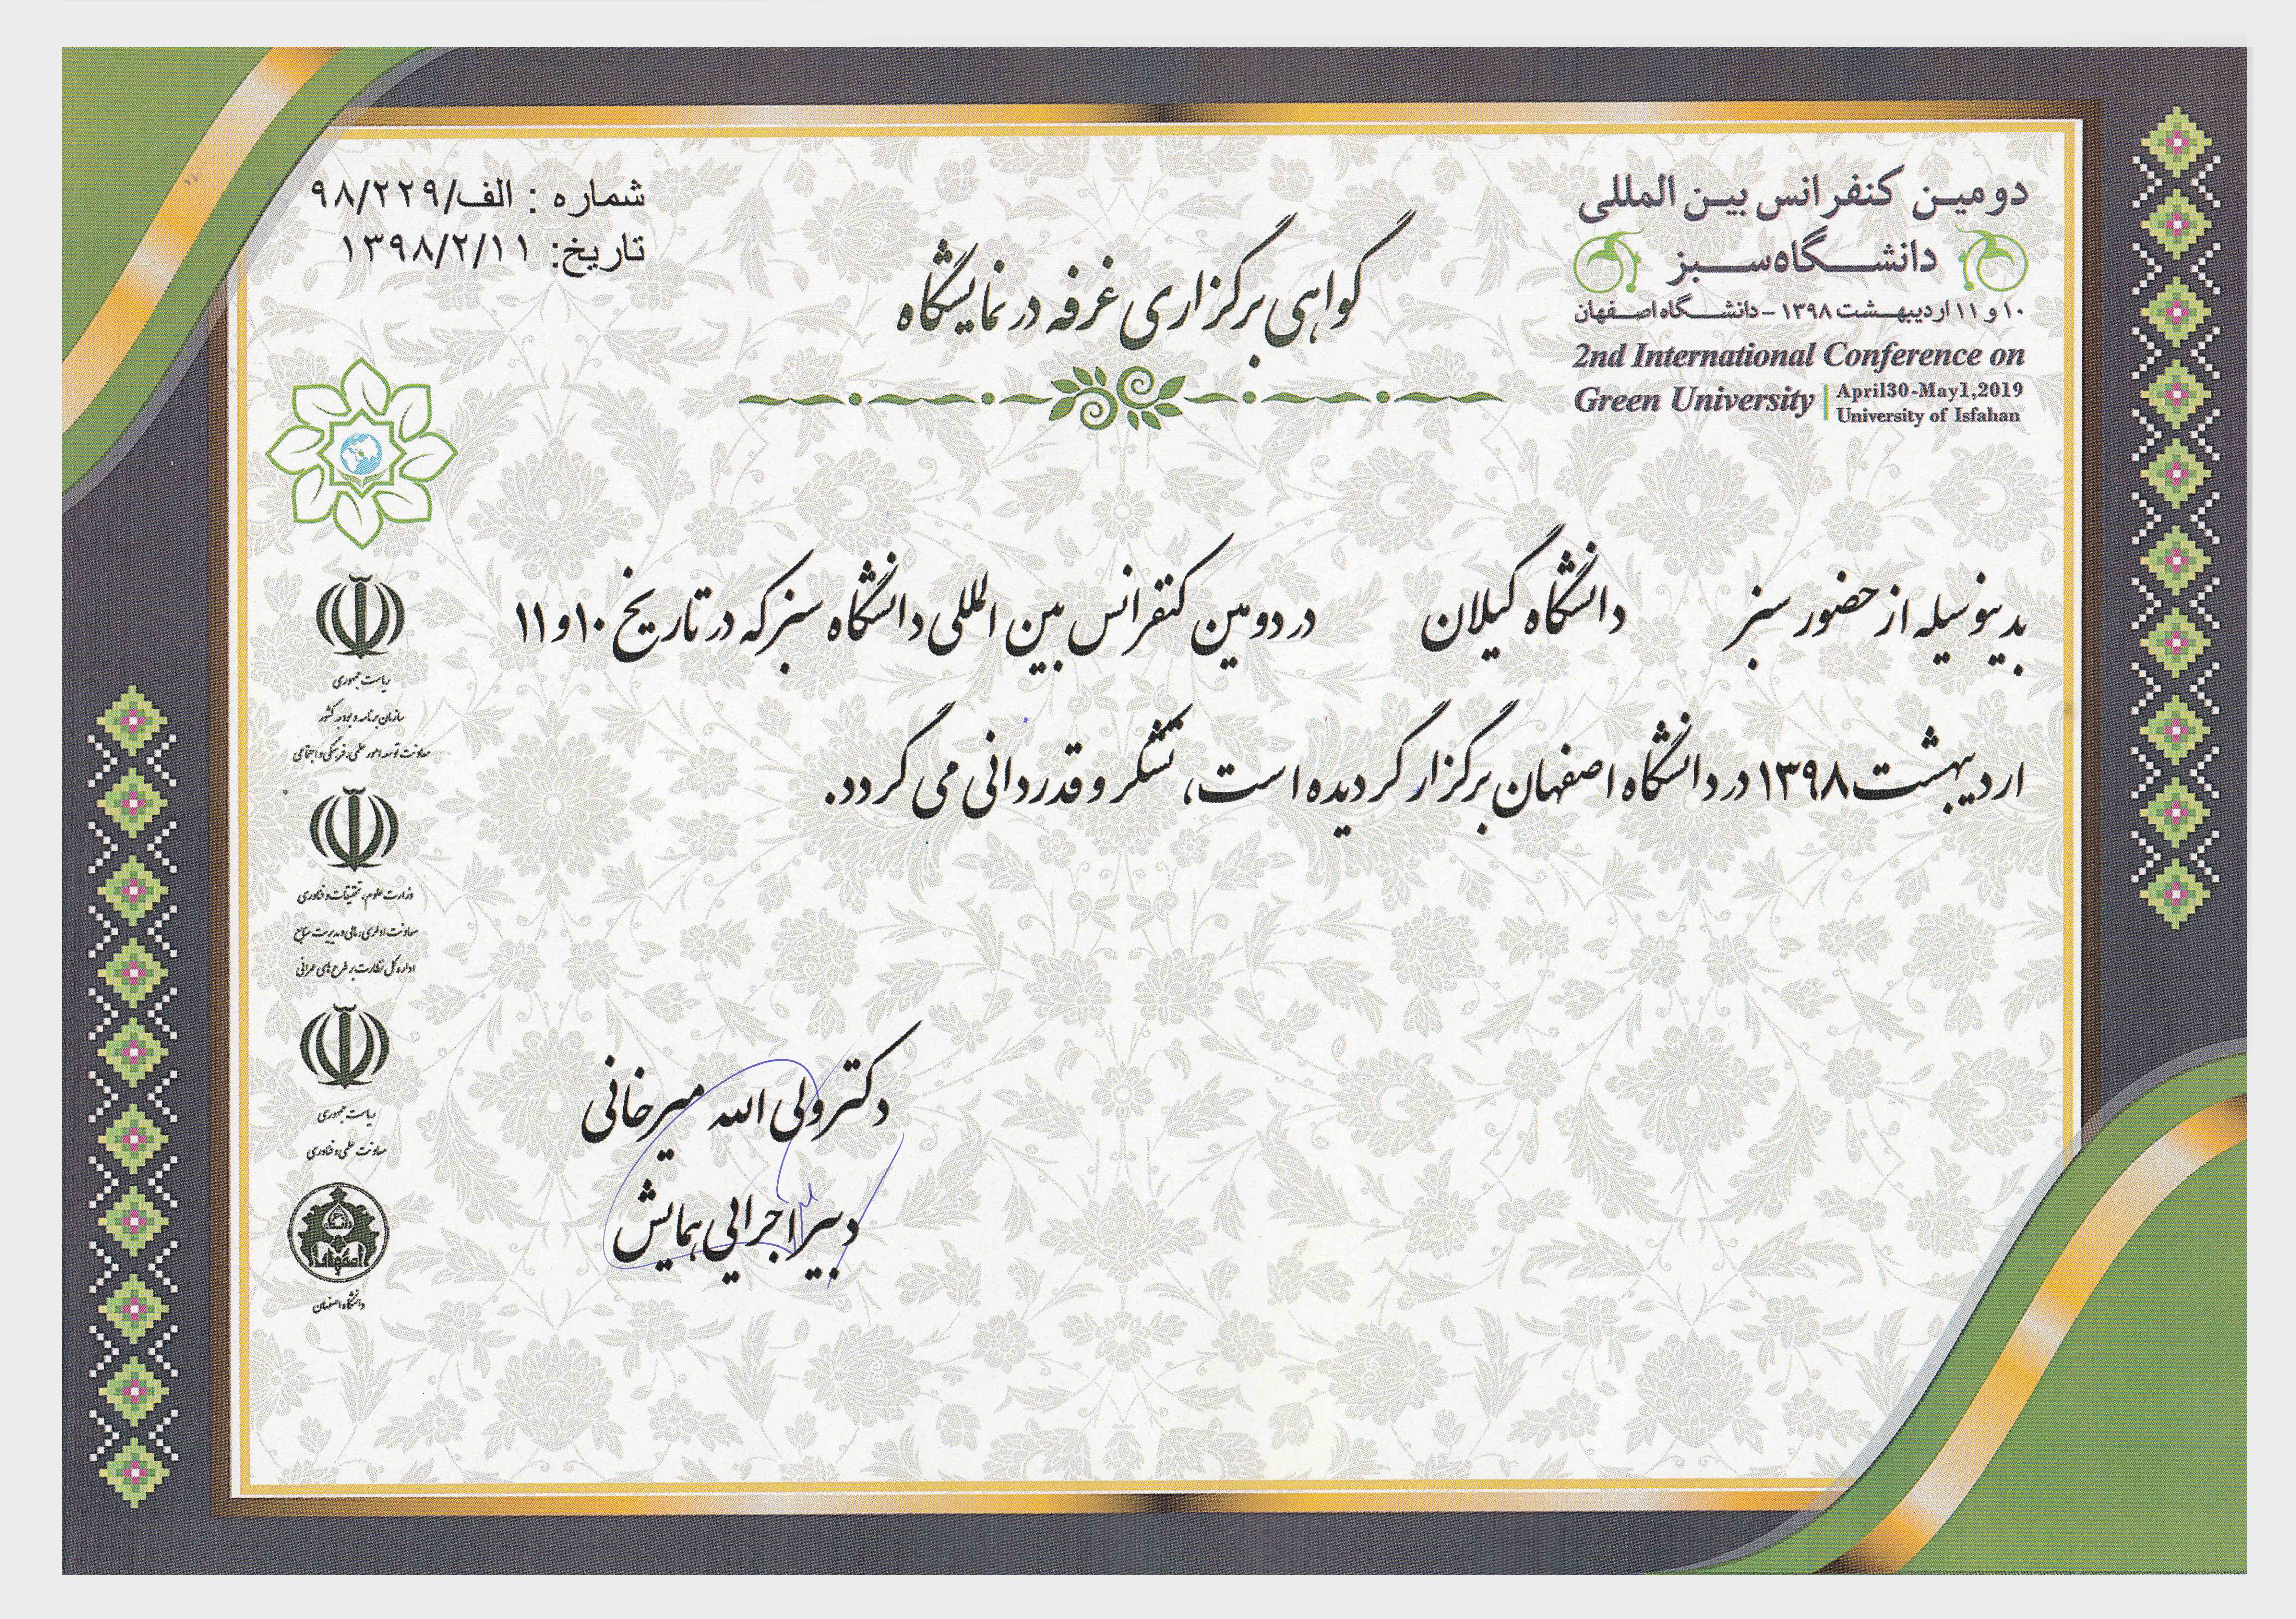 دومین کنفرانس بین المللی
دانشگاه سبز
۱۰ و ۱۱ اردیبهشت ۱۳۹۸ – دانشگاه اصفهان
2nd International Conference on
Green University | April30-May1,2019
University of Isfahan
شماره : الف/۹۸/۲۲۹
تاریخ: ۱۳۹۸/۲/۱۱
گواهی برگزاری غرفه در نمایشگاه
بدینوسیله از حضور سبز دانشگاه گیلان در دومین کنفرانس بین المللی دانشگاه سبز که در تاریخ ۱۰ و ۱۱
اردیبهشت ۱۳۹۸ در دانشگاه اصفهان برگزار گردیده است، تشکر و قدردانی می گردد.
ریاست جمهوری
سازمان برنامه و بودجه کشور
معاونت توسعه امور علمی، فرهنگی و اجتماعی
وزارت علوم، تحقیقات و فناوری
معاونت اداری، مالی و مدیریت منابع
اداره کل نظارت بر طرح های عمرانی
ریاست جمهوری
معاونت علمی و فناوری
دانشگاه اصفهان
دکتر ولی الله میرخانی
دبیر اجرایی همایش